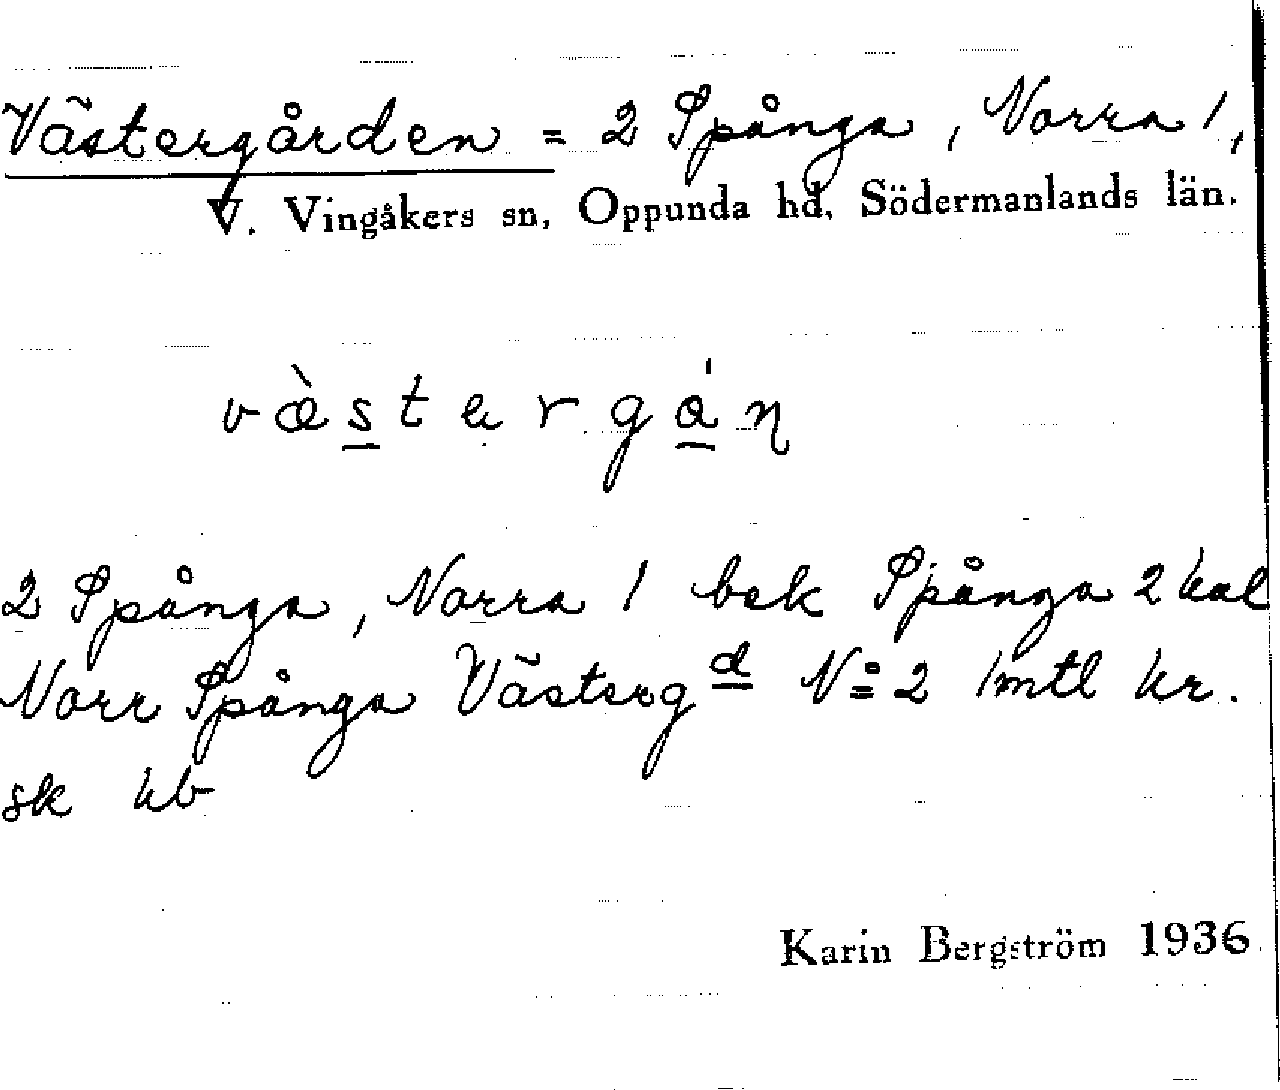 Västergården = 2 Spånga, Norra 1,
V. Vingåkers sn, Oppunda hd, Södermanlands län.
væ̀stərgάɳ
2 Spånga, Norra 1 bek Spånga 2 kal
Norr Spånga Västerg d No 2 1 mtl kr.
sk kb
Karin Bergström 1936